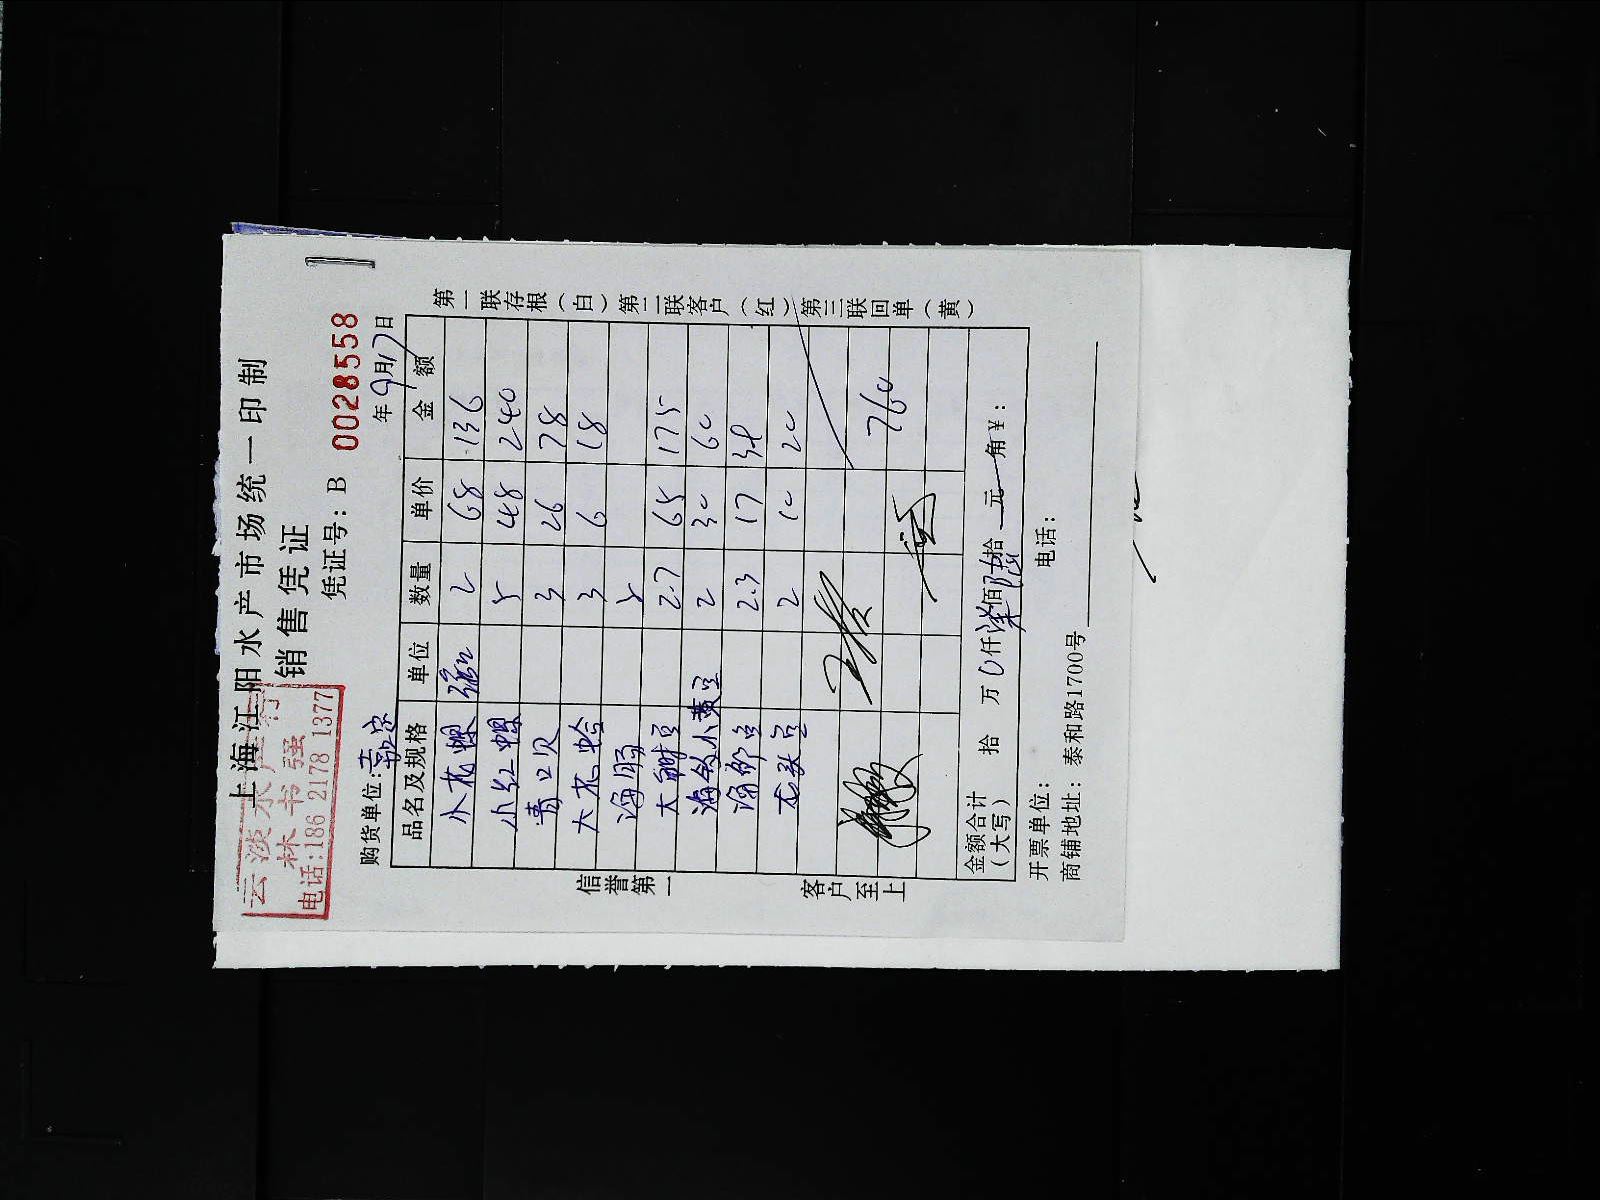 上海江阳水产市场统一印制
销售凭证
云淡水产行
林书强
电话:186 2178 1377
凭证号: B 0028558
购货单位: 嘉定 年9月17日
品名及规格 单位 数量 单价 金额
小花螺 2 68 136
小红螺 5 48 240
青口贝 3 26 78
大花蛤 3 6 18
海肠 5
2.7 65 175
2 30 60
2.3 17 38
龙头豆 2 10 20
760
金额合计(大写) 拾 万 0 仟 柒 佰 陆 拾 元 角 ¥:
开票单位: 电话:
商铺地址: 泰和路1700号
信誉第一
客户至上
第一联存根(白) 第二联客户(红) 第三联回单(黄)